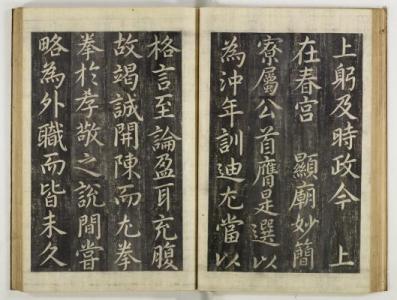 上躬及時政今 上
在春宮 顯廟妙簡
寮屬公首膺是選以
為沖年訓迪尤當以
格言至論盈耳充腹
故竭誠開陳而尤拳
拳於孝敬之說間嘗
略為外職而皆未久